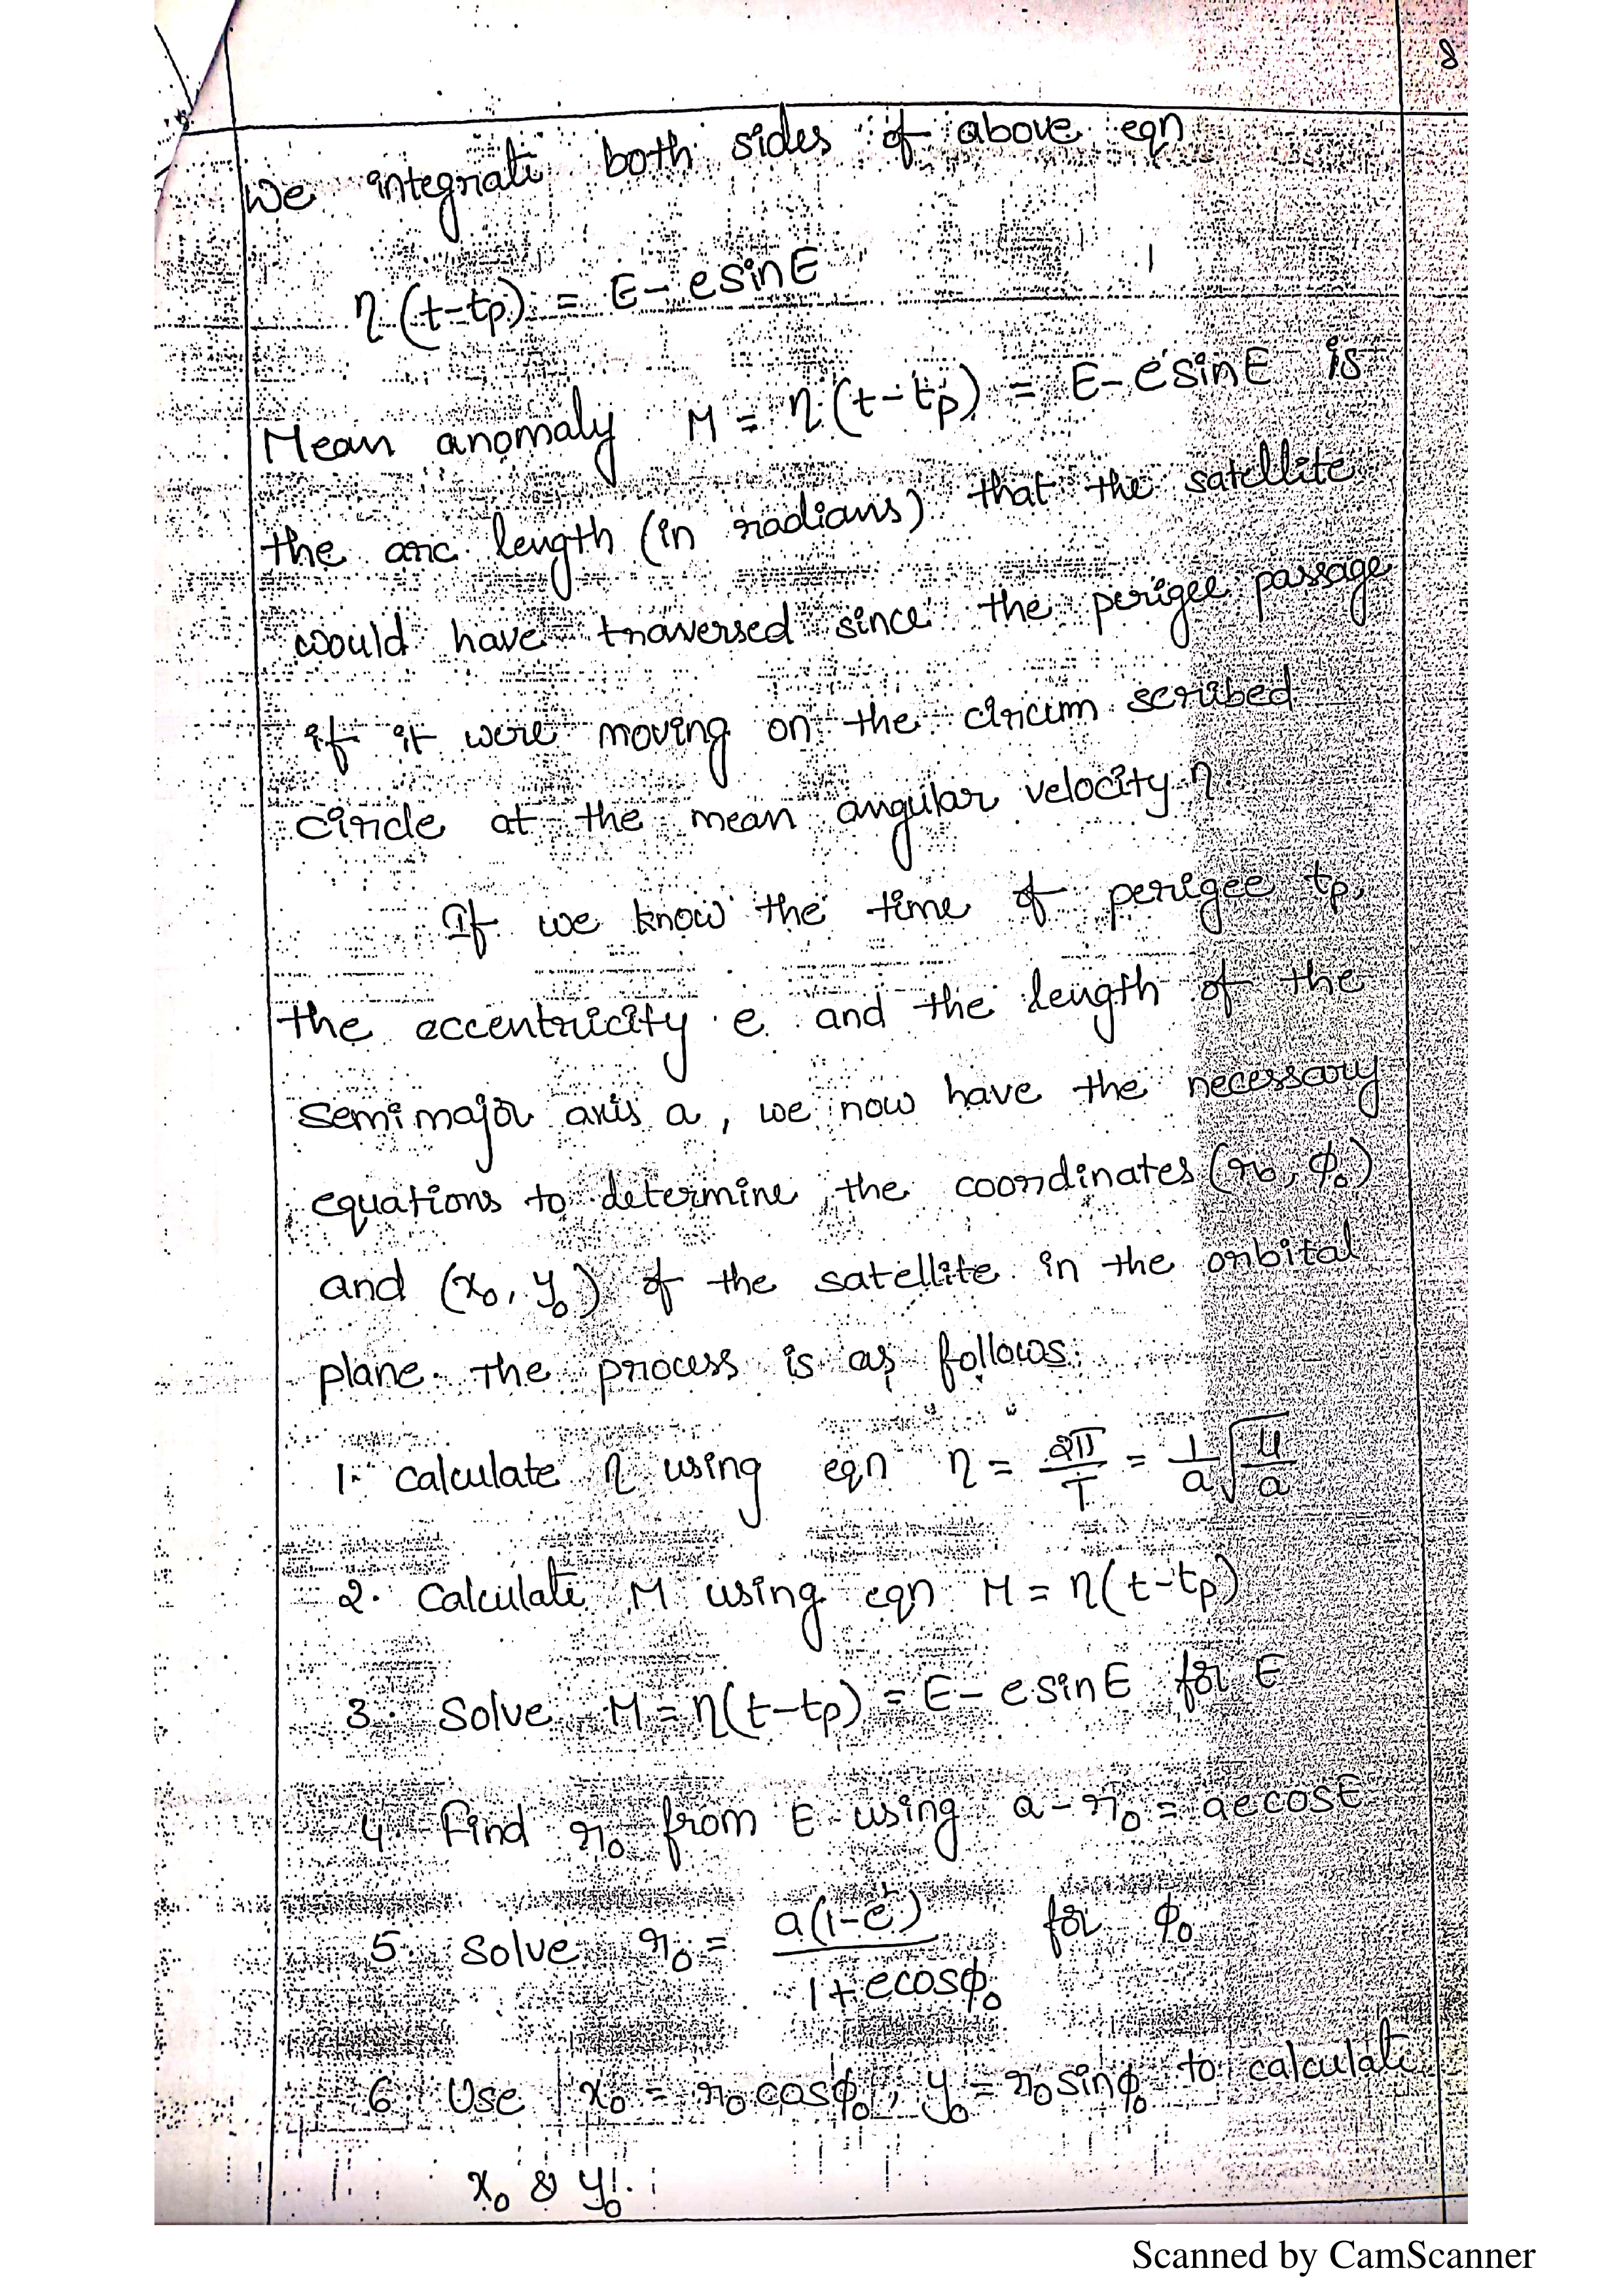 8
We integrate both sides of above eqn
η(t-tp) = E-esinE
Mean anomaly M = η(t-tp) = E-esinE is
the arc length (in radians) that the satellite
would have traversed since the perigee passage
if it were moving on the circum scribed
circle at the mean angular velocity η.
If we know the time of perigee tp,
the eccentricity e and the length of the
semi major axis a, we now have the necessary
equations to determine the coordinates (r₀, φ₀)
and (x₀, y₀) of the satellite in the orbital
plane. The process is as follows:
1. Calculate η using eqn η = 2π/T = 1/a √(μ/a)
2. Calculate M using eqn M = η(t-tp)
3. Solve M = η(t-tp) = E-esinE for E
4. Find r₀ from E using a-r₀ = aecosE
5. Solve r₀ = a(1-e²)/(1+ecosφ₀) for φ₀
6. Use x₀ = r₀cosφ₀, y₀ = r₀sinφ₀ to calculate
x₀ & y₀.
Scanned by CamScanner